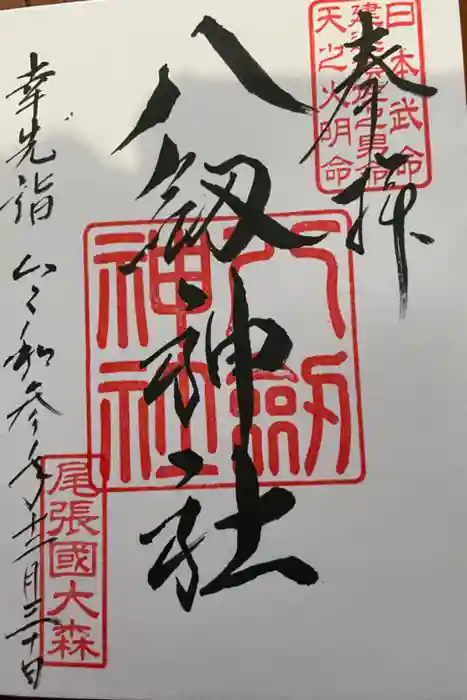 奉拝
日本武命
建速須佐之男命
天之火明命
八剱神社
八剱
神社
幸先詣 令和参年十二月三十日
尾張國大森